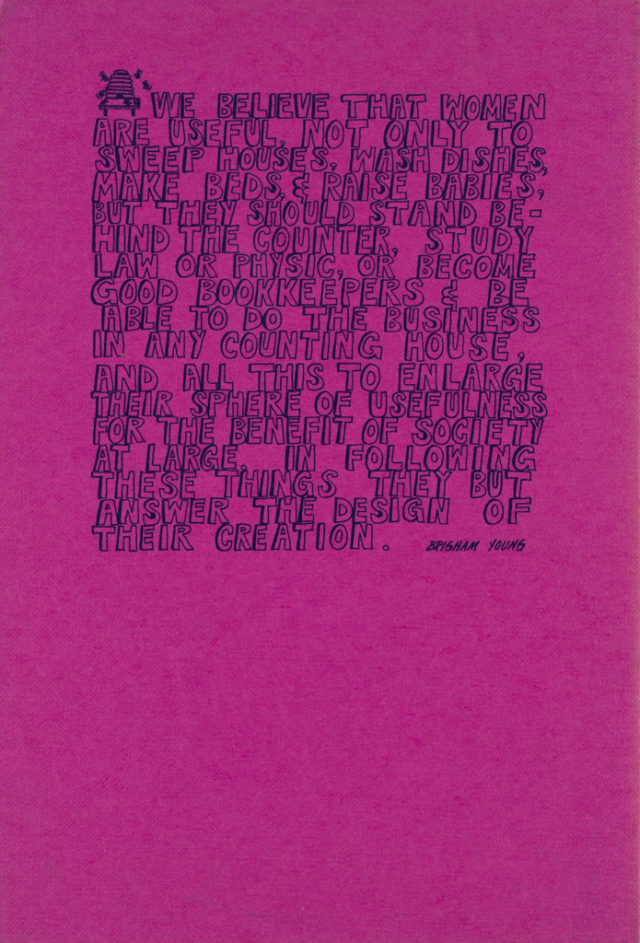 WE BELIEVE THAT WOMEN
ARE USEFUL, NOT ONLY TO
SWEEP HOUSES, WASH DISHES,
MAKE BEDS, & RAISE BABIES,
BUT THEY SHOULD STAND BE-
HIND THE COUNTER, STUDY
LAW OR PHYSIC, OR BECOME
GOOD BOOKKEEPERS & BE
ABLE TO DO THE BUSINESS
IN ANY COUNTING HOUSE,
AND ALL THIS TO ENLARGE
THEIR SPHERE OF USEFULNESS
FOR THE BENEFIT OF SOCIETY
AT LARGE. IN FOLLOWING
THESE THINGS THEY BUT
ANSWER THE DESIGN OF
THEIR CREATION. BRIGHAM YOUNG